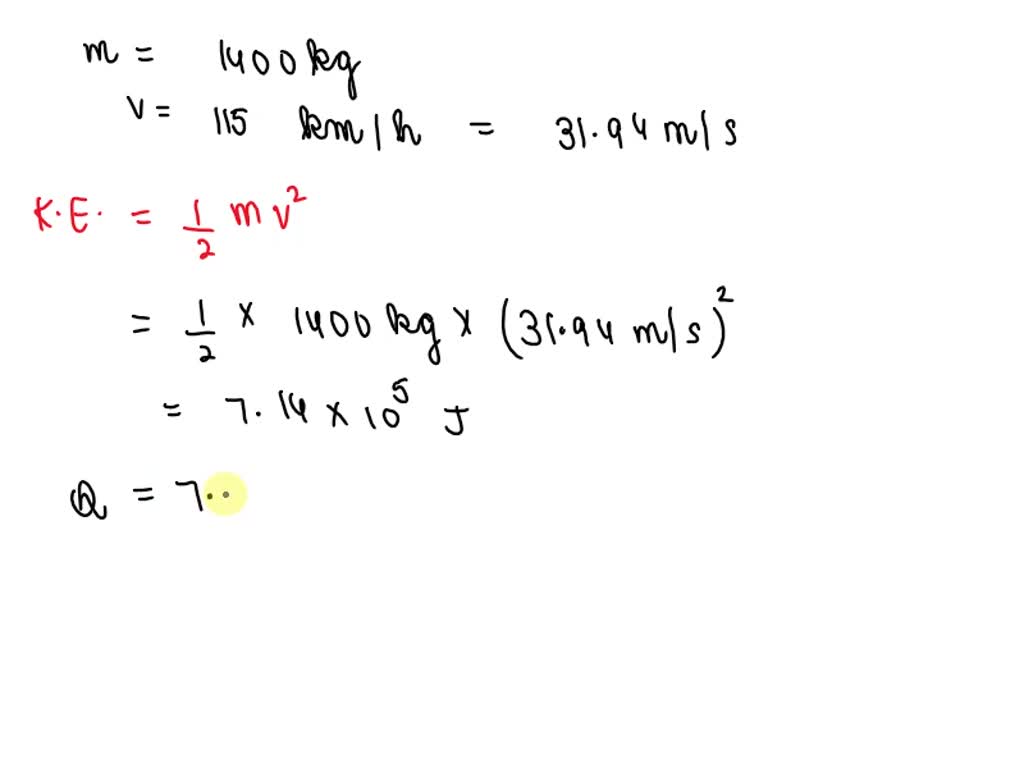 m = 1400 kg
v = 115 km/h = 31.94 m/s
K.E. = 1/2 mv²
= 1/2 × 1400 kg × (31.94 m/s)²
= 7.14 × 10⁵ J
Q = 7..